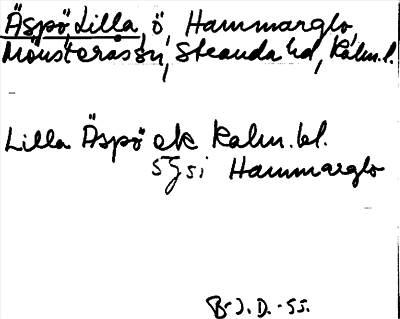 Äspö, Lilla, ö, Hammarglo,
Mönsterås sn, Stranda hd, Kalm. l.
Lilla Äspö ek Kalm. bl.
5 G si Hammarglo
B-J. D. -55.